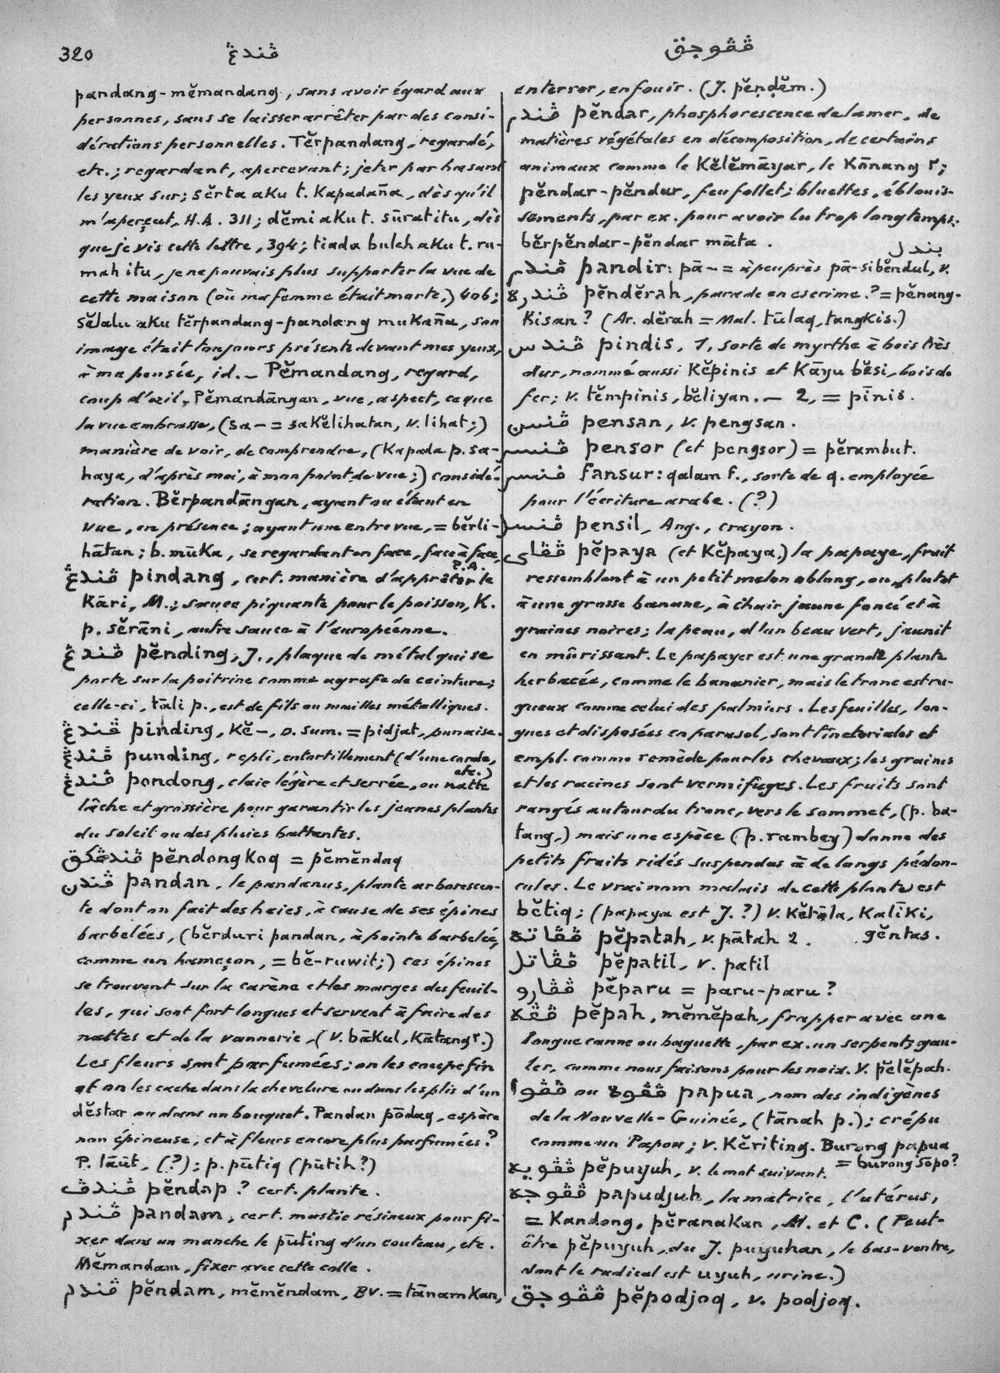 320
ڤندڠ
ڤڤوجق
pandang-mĕmandang, sans avoir égard aux
personnes, sans se laisser arrêter par des consi-
dérations personnelles. Tĕrpandang, regardé,
etc.; regardant, apercevant; jeter par hasard
les yeux sur; sĕrta aku t. Kapadaña, dès qu'il
m'aperçut, H.A. 311; dĕmi aku t. sūrat itu, dès
que je vis cette lettre, 394; tiada buleh aku t. ru-
mah itu, je ne pouvais plus supporter la vue de
cette maison (où ma femme était morte,) 406;
sĕlalu aku tĕrpandang-pandang mukaña, son
image était toujours présente devant mes yeux,
à ma pensée, id. _ Pĕmandang, regard,
coup d'œil. Pĕmandāngan, vue, aspect, ce que
la vue embrasse, (sa- = sakĕlihatan, v. lihat;)
manière de voir, de comprendre, (Kapada p. sa-
haya, d'après moi, à mon point de vue;) considé-
ration. Bĕrpandāngan, ayant ou étant en
vue, en présence; ayant une entrevue, = bĕrli-
hātan; b. mūka, se regardant en face, face à face. P.A.
ڤندڠ pindang, cert. manière d'apprêter le
Kāri, M.; sauce piquante pour le poisson, K.
p. sĕrāni, autre sauce à l'européenne.
ڤندڠ pĕnding, J., plaque de métal qui se
porte sur la poitrine comme agrafe de ceinture;
celle-ci, tāli p., est de fils ou mailles métalliques.
ڤندڠ pinding, Kĕ-, o. sum. = pidjat, punaise.
ڤندڠ punding, repli, entortillement (d'une corde, etc.)
ڤندڠ pondong, claie légère et serrée, ou natte
lâche et grossière pour garantir les jeunes plantes
du soleil ou des pluies battantes.
ڤندڠكق pĕndongkoq = pĕmĕndaq
ڤندن pandan, le pandanus, plante arborescen-
te dont on fait des haies, à cause de ses épines
barbelées, (bĕrduri pandan, à pointe barbelée,
comme un hameçon, = bĕ-ruwit;) ces épines
se trouvent sur la carène et les marges des feuil-
les, qui sont fort longues et servent à faire des
nattes et de la vannerie, (v. bākul, Kātang r.)
Les fleurs sont parfumées; on les coupe fin
et on les cache dans la chevelure ou dans les plis d'un
dĕstar ou dans un bouquet. Pandan pōdaq, espèce
non épineuse, et à fleurs encore plus parfumées?
P. lāūt, (?); p. pūtiq (pūtih?)
ڤندڤ pĕndap? cert. plante.
ڤندم pandam, cert. mastic résineux pour fi-
xer dans un manche le pūting d'un couteau, etc.
Mĕmandam, fixer avec cette colle.
ڤندم pĕndam, mĕmĕndam, BV. = tānamkan,
enterrer, enfouir. (J. pĕnḍĕm.)
ڤندر pĕndar, phosphorescence de la mer, de
matières végétales en décomposition, de certains
animaux comme le Kĕlĕmāyar, le Kānang r;
pĕndar-pĕndar, feu follet; bluettes, éblouis-
sements, par ex. pour avoir lu trop longtemps.
bĕrpĕndar-pĕndar māta.
بندل
ڤندر pandir: pā- = à peu près pā-sibĕndul, v.
ڤندره pĕndĕrah, parade en escrime? = pĕnang-
kisan? (Ar. dĕrah = Mal. tūlaq, tangkis.)
ڤندس pindis, 1, sorte de myrthe à bois très
dur, nommé aussi Kĕpinis et Kāyu bĕsi, bois de
fer; v. tĕmpinis, bĕliyan. — 2, = pīnis.
ڤنسن pensan, v. pengsan.
ڤنسر pensor (et pengsor) = pĕrambut.
ڤنسر fansur: qalam f., sorte de q. employée
pour l'écriture arabe. (?)
ڤنسل pensil, Ang., crayon.
ڤڤاي pĕpaya (et Kĕpaya.) la papaye, fruit
ressemblant à un petit melon oblong, ou plutôt
à une grosse banane, à chair jaune foncé et à
graines noires; la peau, d'un beau vert, jaunit
en mûrissant. Le papayer est une grande plante
herbacée, comme le bananier, mais le tronc est ru-
gueux comme celui des palmiers. Les feuilles, lon-
gues et disposées en parasol, sont tinctoriales et
empl. comme remède pour les chevaux; les graines
et les racines sont vermifuges. Les fruits sont
rangés autour du tronc, vers le sommet, (p. ba-
tang,) mais une espèce (p. rambey) donne des
petits fruits ridés suspendus à de longs pédon-
cules. Le vrai nom malais de cette plante est
bĕtiq; (papaya est J. ?) v. Kĕtēla, Kalīki,
gĕntas.
ڤڤاته pĕpatah, v. pātah 2.
ڤڤاتل pĕpatil, v. patil
ڤڤارو pĕparu = paru-paru?
ڤڤه pĕpah, mĕmĕpah, frapper avec une
longue canne ou baguette, par ex. un serpent; gau-
ler, comme nous faisons pour les noix. v. pĕlĕpah.
ڤڤوا ou ڤڤوه papua, nom des indigènes
de la Nouvelle-Guinée, (tānah p.); crépu
comme un Papou; v. Kĕriting. Burong papua
= burong sopo?
ڤڤويه pĕpuyuh, v. le mot suivant.
ڤڤوجه papudjuh, la matrice, l'utérus,
= Kandong, pĕranakan, M. et C. (Peut-
être pĕpuyuh, du J. puyuhan, le bas-ventre,
dont le radical est uyuh, urine.)
ڤڤوجق pĕpodjoq, v. podjoq.